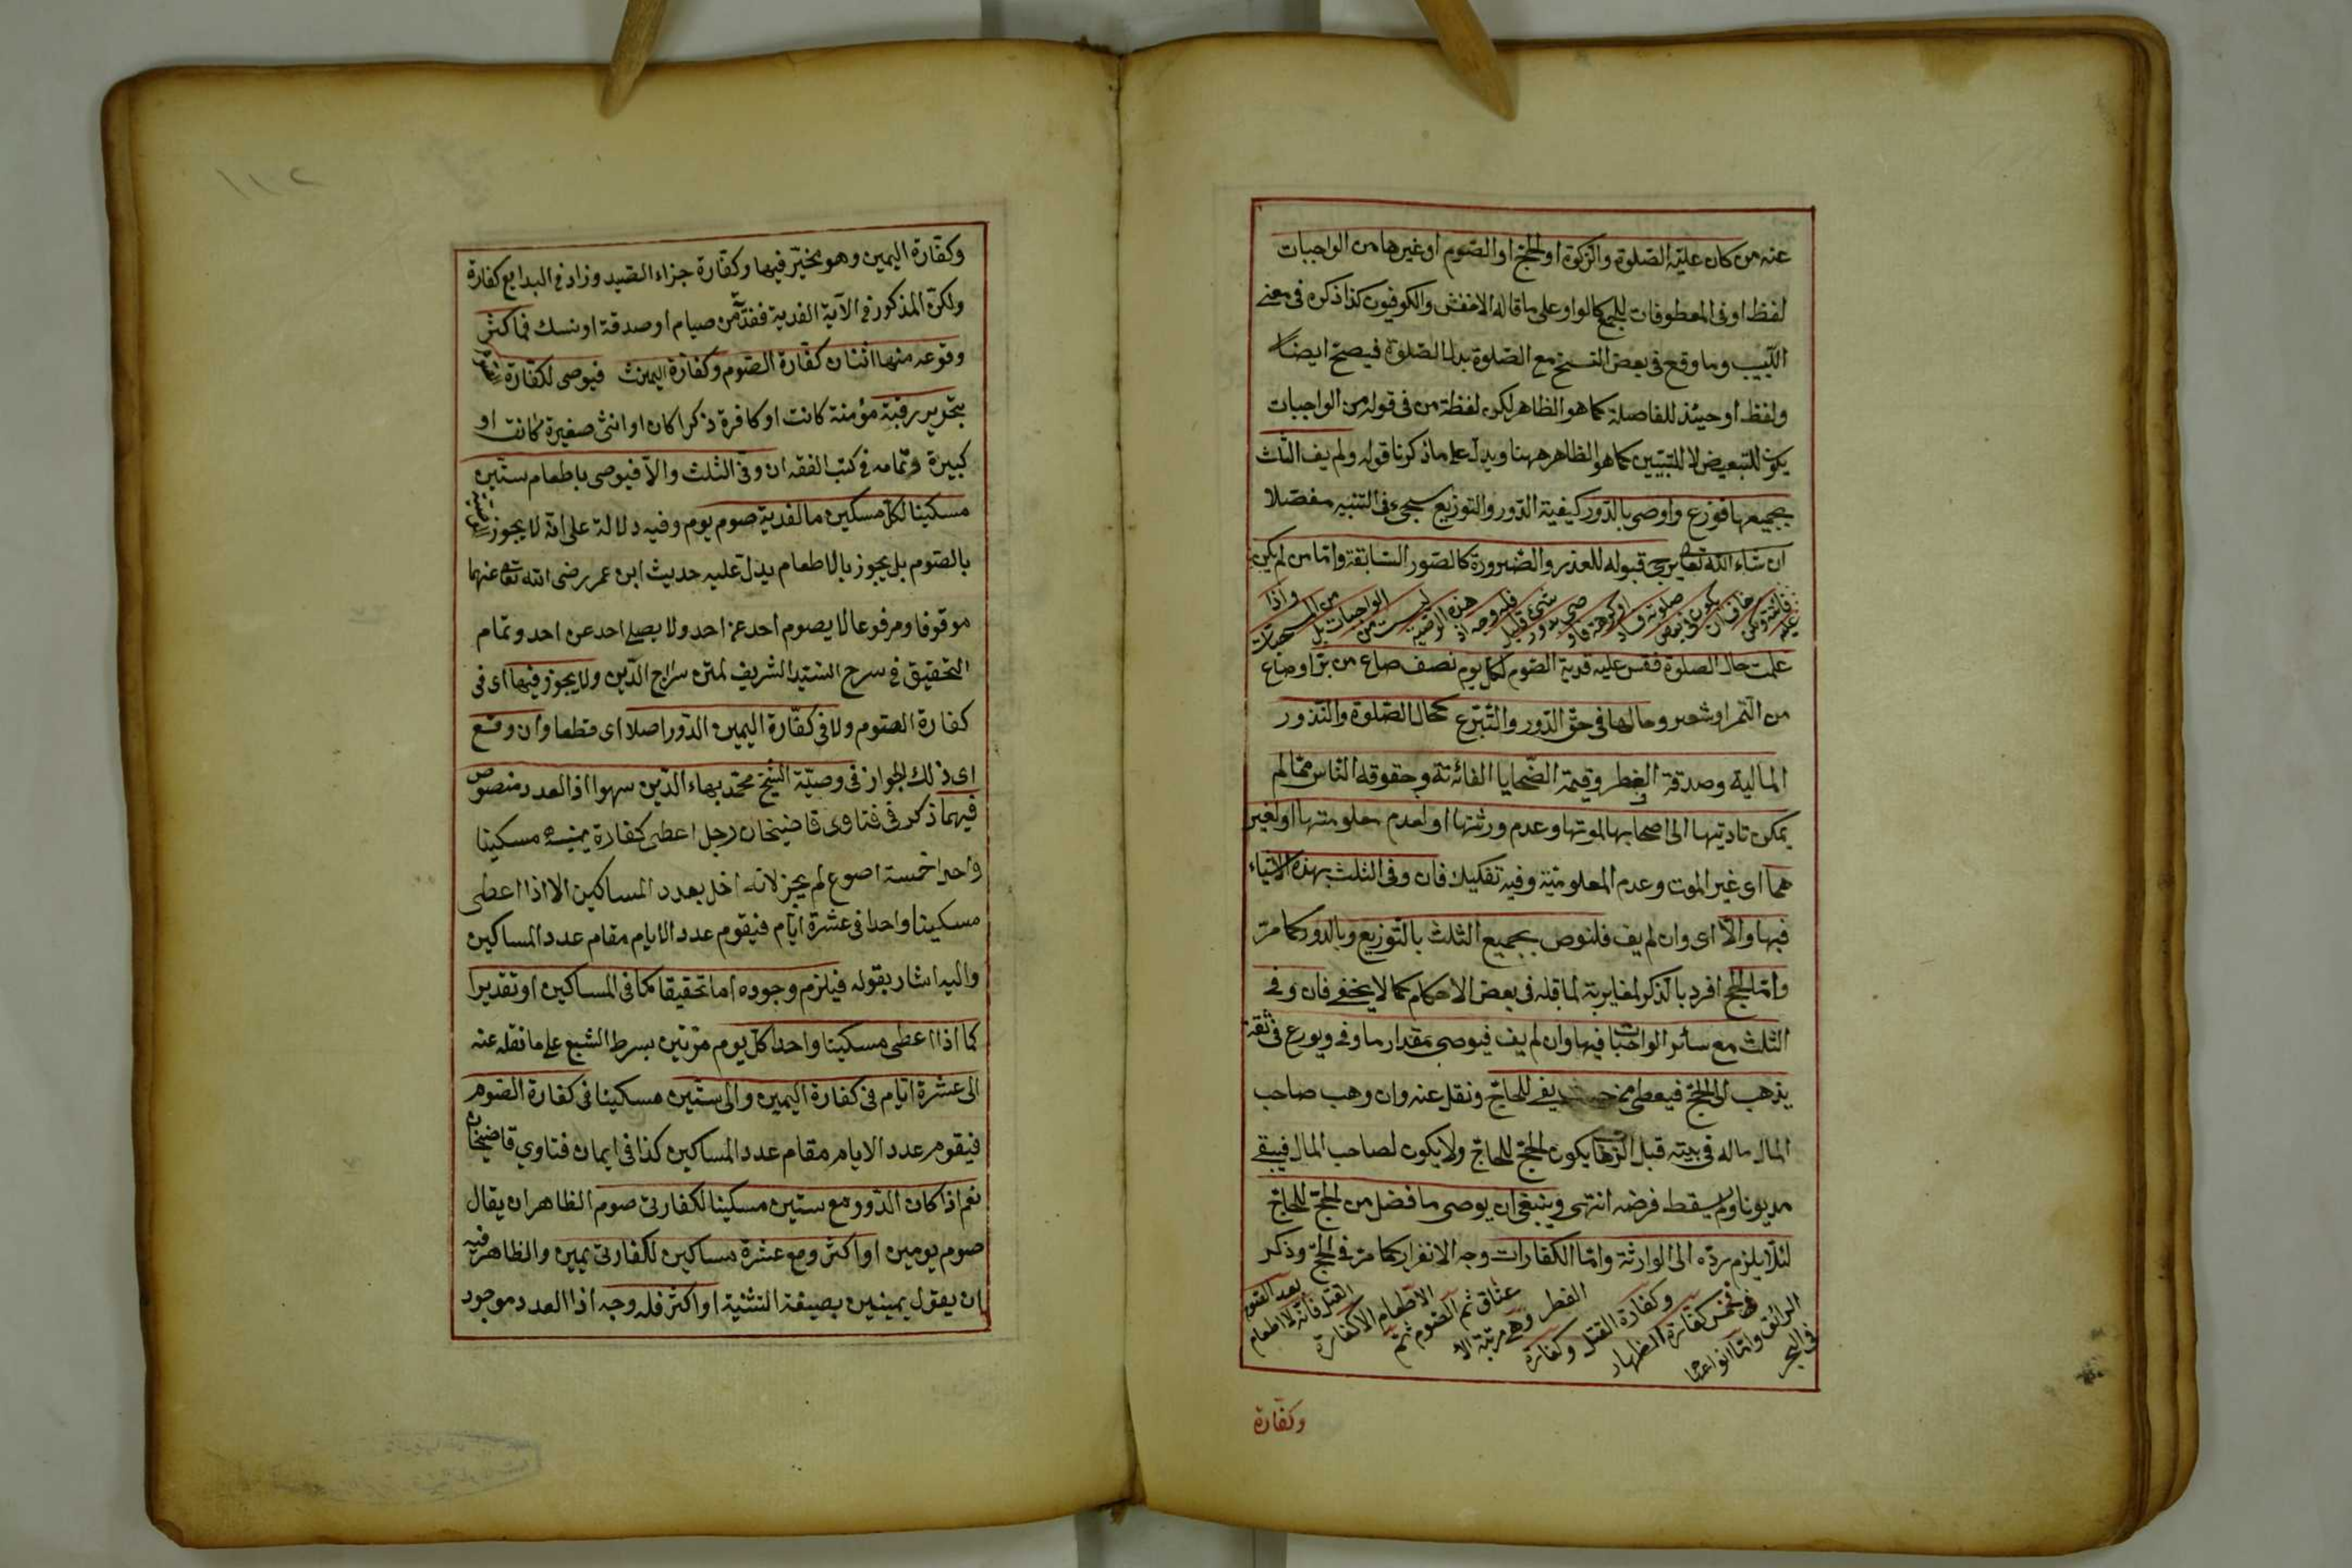 عنه من كان عليه الصلوة والزكوة او الحج او الصوم او غيرها من الواجبات
لفظ او فى المعطوفات للجمع كالواو على ما قاله الاخفش والكوفيون كذا ذكره فى مغنى
اللبيب وما وقع فى بعض النسخ مع الصلوة بدل الصلوة فيصح ايضا
ولفظ او حينئذ للفاصلة كما هو الظاهر لكن لفظة من فى قوله من الواجبات
يكون للتبعيض لا للتبيين كما هو الظاهر ههنا ويدل على ما ذكرنا قوله ولم يف الثلث
بجميعها فوزع واوصى بالدور كيفية الدور والتوزيع سيجىء فى التنبيه مفصلا
ان شاء الله تعالى قبوله للعذر والضرورة كالصور السابقة واما من لم يكن
عليه فائتة ولكن خاف ان يكون فى بعض صلوته فساد او كراهة فاوصى بدور شىء قليل فله وجه اذ هذه الوصية ليست من الواجبات بل من المستحبات واذا
علمت حال الصلوة فقس عليه فدية الصوم لكل يوم نصف صاع من بر او صاع
من التمر او شعير وحالها فى حق الدور والتبرع كحال الصلوة والنذور
المالية وصدقة الفطر وقيمة الضحايا الفائتة وحقوق الناس مما لم
يمكن تاديتها الى اصحابها لموتها وعدم ورثتها او لعدم معلوميتها او لغير
هما اى غير الموت وعدم المعلومية وفيه تفكيك فان وفى الثلث بهذه الاشياء
فبها والا اى وان لم يف فلنوص بجميع الثلث بالتوزيع وبالدور كما مر
واما الحج افرد بالذكر لمغايرته لما قبله فى بعض الاحكام كما لا يخفى فان وفى
الثلث مع سائر الواجبات فيها وان لم يف فيوصى بمقدار ما وفى ويورع فى ثقة
يذهب الى الحج فيعطى من حيث يفى للحاج ونقل عنه وان وهب صاحب
المال ماله فى بيته قبل الذهاب يكون الحج للحاج ولا يكون لصاحب المال فيبقى
مديونا ولم يسقط فرضه انتهى وينبغى ان يوصى ما فضل من الحج للحاج
لئلا يلزم رده الى الوارثة واما الكفارات وجه الانفراد كما مر فى الحج وذكر
فى البحر الرائق واما انواعها فخمس كفارة الظهار وكفارة القتل وكفارة الفطر وهى مرتبة الاعتاق ثم الصوم ثم الاطعام الا كفارة القتل فانه لا اطعام بعد الصوم
وكفارة
وكفارة اليمين وهو مخير فيها وكفارة جزاء الصيد وزاد فى البدايع كفارة
ولكن المذكور فى الآية الفدية ففدية من صيام او صدقة او نسك فما كثر
وقوعه منها اثنان كفارة الصوم وكفارة اليمين فيوصى لكفارة
بتحرير رقبة مؤمنة كانت او كافرة ذكرا كان او انثى صغيرة كانت او
كبيرة وتمامه فى كتب الفقه ان وفى الثلث والا فيوصى باطعام ستين
مسكينا لكل مسكين ما لفدية صوم يوم وفيه دلالة على انه لا يجوز
بالصوم بل يجوز بالاطعام يدل عليه حديث ابن عمر رضى الله تعالى عنهما
موقوفا ومرفوعا لا يصوم احد عن احد ولا يصلى احد عن احد وتمام
التحقيق فى شرح السيد الشريف لمتن سراج الدين ولا يجوز فيها اى فى
كفارة الصوم ولا فى كفارة اليمين الدور اصلا اى قطعا وان وقع
اى ذلك الجواز فى وصية الشيخ محمد بهاء الدين سهوا اذ العدد منصوص
فيهما ذكر فى فتاوى قاضيخان رجل اعطى كفارة يمينه مسكينا
واحدا خمسة اصوع لم يجز لانه اخل بعدد المساكين الا اذا اعطى
مسكينا واحدا فى عشرة ايام فيقوم عدد الايام مقام عدد المساكين
واليه اشار بقوله فيلزم وجوده اما تحقيقا كما فى المساكين او تقديرا
كما اذا اعطى مسكينا واحدا كل يوم مرتين بشرط الشبع على ما نقله عنه
الى عشرة ايام فى كفارة اليمين والى ستين مسكينا فى كفارة الصوم
فيقوم عدد الايام مقام عدد المساكين كذا فى ايمان فتاوي قاضيخان
نعم اذا كان الدور مع ستين مسكينا لكفارتى صوم الظاهر ان يقال
صوم يومين او اكثر ومع عشرة مساكين لكفارتى يمين والظاهر فيه
ان يقول يمينين بصيغة التثنية او اكثر فله وجه اذا العدد موجود